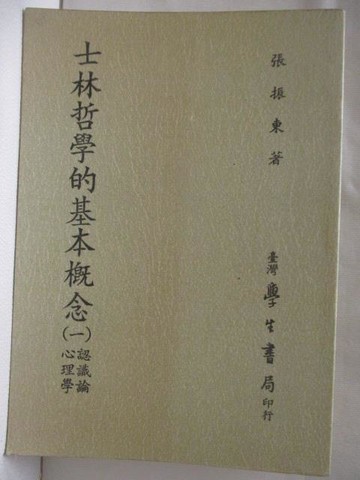 張振東著
臺灣學生書局印行
士林哲學的基本概念(一)認識論
心理學